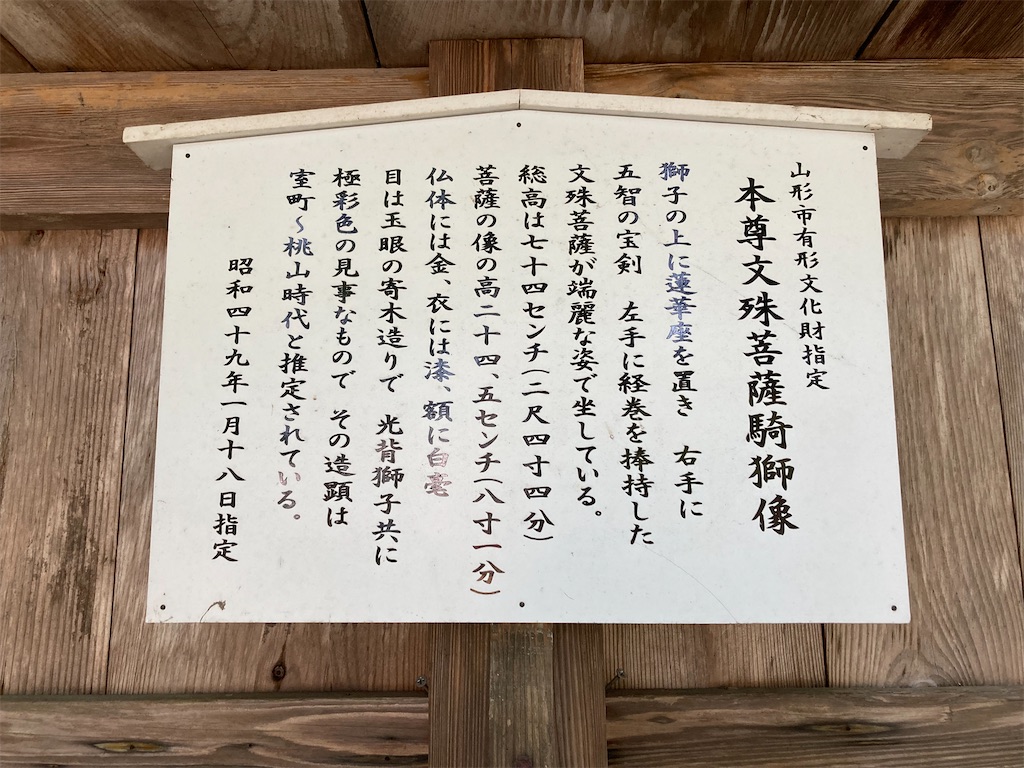 山形市有形文化財指定
本尊文殊菩薩騎獅像
獅子の上に蓮華座を置き　右手に
五智の宝剣　左手に経巻を捧持した
文殊菩薩が端麗な姿で坐している。
総高は七十四センチ(二尺四寸四分)
菩薩の像の高二十四、五センチ(八寸一分)
仏体には金、衣には漆、額に白毫
目は玉眼の寄木造りで　光背獅子共に
極彩色の見事なもので　その造顕は
室町〜桃山時代と推定されている。
昭和四十九年一月十八日指定